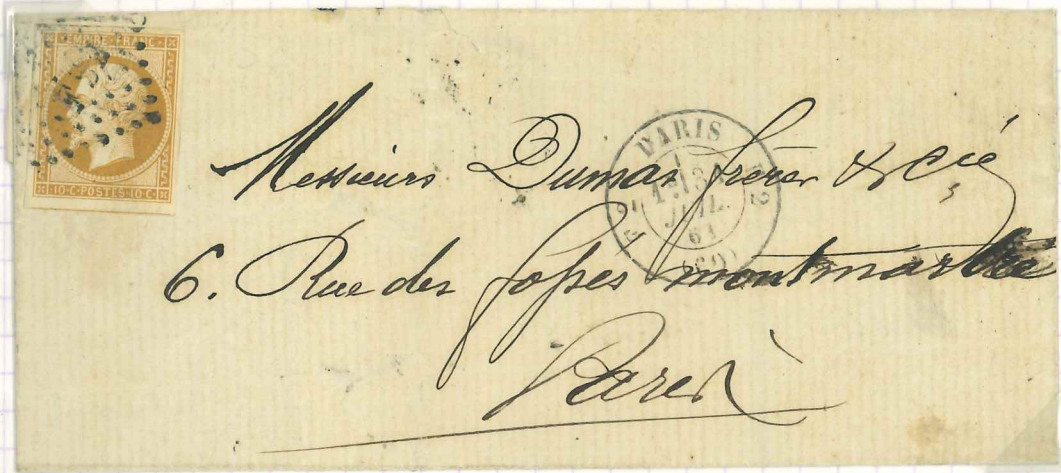 EMPIRE FRANC.
10·C·POSTES·10·C·
PARIS
1E 13
JUIL.
61
(60)
Messieurs Dumas frères & Cie
6. Rue des fossés montmartre
Paris